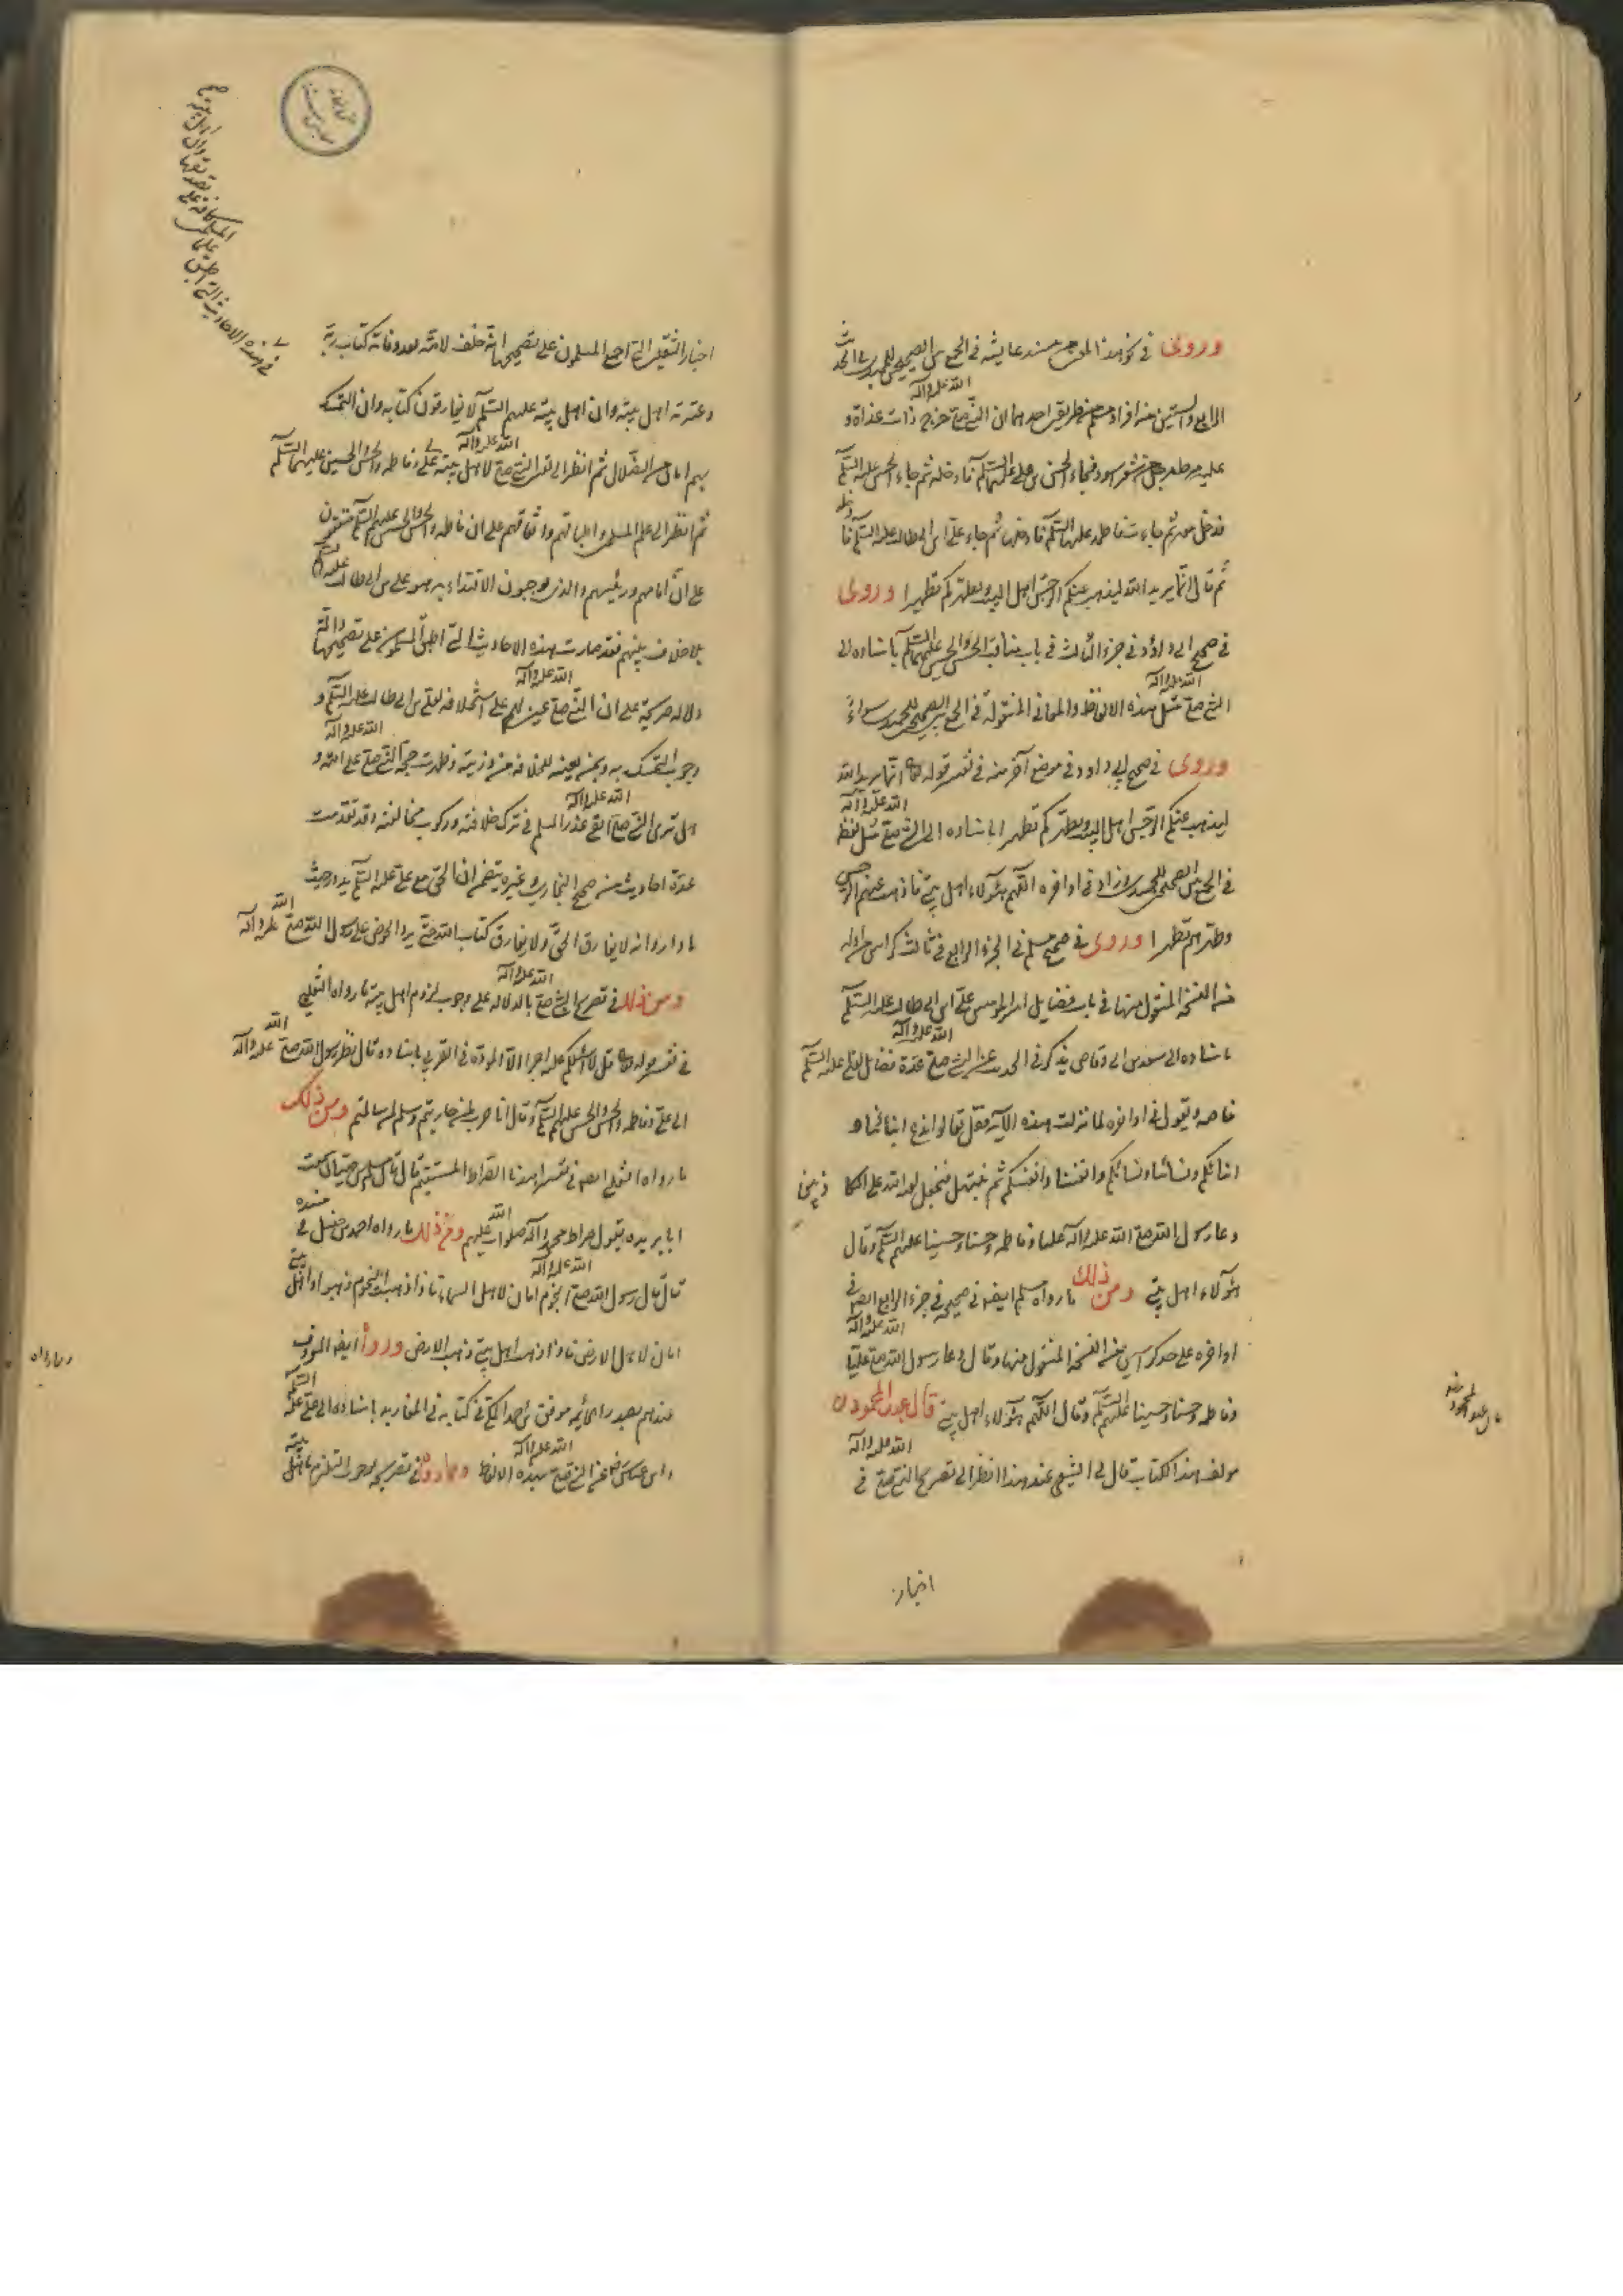 وروى في نحو هذا المعنى من مسند عايشه في الجمع بين الصحيحين للحميدي في الحديث
الرابع والستين من افراد مسلم من طريقين احدهما ان النبي صلى الله عليه وآله خرج ذات غداة و
عليه مرط مرحل من شعر اسود فجاء الحسن بن علي عليهما السلام فادخله ثم جاء الحسين عليه السلام
فدخل معه ثم جاءت فاطمه عليها السلام فادخلها ثم جاء علي بن ابي طالب عليه السلام فادخله
ثم قال انما يريد الله ليذهب عنكم الرجس اهل البيت ويطهركم تطهيرا وروى
في صحيح ابي داؤد في جزء الثالث في باب مناقب الحسن والحسين عليهما السلام باسناده الى
النبي صلى الله عليه وآله مثل هذه الالفاظ والمعاني المنقولة في الجمع بين الصحيحين للحميدي سواء
وروى في صحيح ابي داود في موضع آخر منه في تفسير قوله تعالى انما يريد الله
ليذهب عنكم الرجس اهل البيت ويطهركم تطهيرا باسناده الى النبي صلى الله عليه وآله مثل لفظ
في الجمع بين الصحيحين للحميدي وزاد في اواخره اللهم هؤلاء اهل بيتي فاذهب عنهم الرجس
وطهرهم تطهيرا وروى في صحيح مسلم في الجزء الرابع في ثالث كراس من اوله
من النسخة المنقول منها في باب فضايل امير المومنين علي بن ابي طالب عليه السلام
باسناده الى سعد بن ابي وقاص يذكر في الحديث عن النبي صلى الله عليه وآله عدة فضائل لعلي عليه السلام
خاصه ويقول في اواخره لما نزلت هذه الآية فقل تعالوا ندع ابنائنا و
ابنائكم ونسائنا ونسائكم وانفسنا وانفسكم ثم نبتهل فنجعل لعنة الله على الكاذبين
دعا رسول الله صلى الله عليه وآله عليا وفاطمه وحسنا وحسينا عليهم السلام وقال
هؤلاء اهل بيتي ومن ذلك ما رواه مسلم ايضا في صحيحه في جزء الرابع ايضا في
اواخره على حد كراسين من النسخه المنقول منها وقال ودعا رسول الله صلى الله عليه وآله عليا
وفاطمه وحسنا وحسينا عليهم السلام وقال اللهم هؤلاء اهل بيتي قال عبد المحمود
مولف هذا الكتاب قال لي الشيعي عند هذا انظر الى تصريح النبي صلى الله عليه وآله في
اخبار
اخبار الثقلين التي اجمع المسلمون على تصحيحها انه خلف لامته بعد وفاته كتاب ربه
وعترته اهل بيته وان اهل بيته عليهم السلام لا يفارقون كتابه وان التمسك
بهم امان من الضلال ثم انظر الى تعيين النبي صلى الله عليه وآله لاهل بيته علي وفاطمه والحسن والحسين عليهم السلام
ثم انظر الى علم المسلمين واطباقهم واتفاقهم على ان فاطمه والحسن والحسين عليهم السلام متفقون
على ان امامهم ورئيسهم والذي يوجبون الاقتداء به هو علي بن ابي طالب عليه السلام
بلا خلاف بينهم فقد صارت هذه الاحاديث التي اطبق المسلمون على تصحيحها دالة
دلالة صريحة على ان النبي صلى الله عليه وآله عين لهم على استخلافه لعلي بن ابي طالب عليه السلام و
وجوب التمسك به وبمن يعينه للخلافه من ذريته وظهرت حجة النبي صلى الله عليه وآله على امته و
هل ترى النبي صلى الله عليه وآله ابقى عذرا لمسلم في ترك خلافته وركوب مخالفته وقد تقدمت
عدة احاديث من صحيح البخاري وغيره يتضمن ان الحق مع علي عليه السلام يدور حيث
ما دار وانه لا يفارق الحق ولا يفارق كتاب الله حتى يرد الحوض على رسول الله صلى الله عليه وآله
ومن ذلك في تصريح النبي صلى الله عليه وآله بالدلاله على وجوب لزوم اهل بيته ما رواه الثعلبي
في تفسير قوله تعالى قل لا اسئلكم عليه اجرا الا المودة في القربى باسناده قال نظر رسول الله صلى الله عليه وآله
الى علي وفاطمه والحسن والحسين عليهم السلام وقال انا حرب لمن حاربتم وسلم لمن سالمتم ومن ذلك
ما رواه الثعلبي ايضا في تفسير اهدنا الصراط المستقيم قال قال مسلم بن حيان سمعت
ابا بريده يقول صراط محمد وآله صلوات الله عليهم ومن ذلك ما رواه احمد بن حنبل في مسنده
قال قال رسول الله صلى الله عليه وآله النجوم امان لاهل السماء فاذا ذهبت النجوم ذهبوا واهل بيتي
امان لاهل الارض فاذا ذهب اهل بيتي ذهب اهل الارض ورواه ايضا المعروف
عندهم بصدر الائمه موفق بن احمد المكي في كتابه في باسناده الى علي عليه السلام
وابن عباس عن النبي صلى الله عليه وآله بهذه الالفاظ ومما رووه في تصريحه بوجوب التلزم باهل بيته